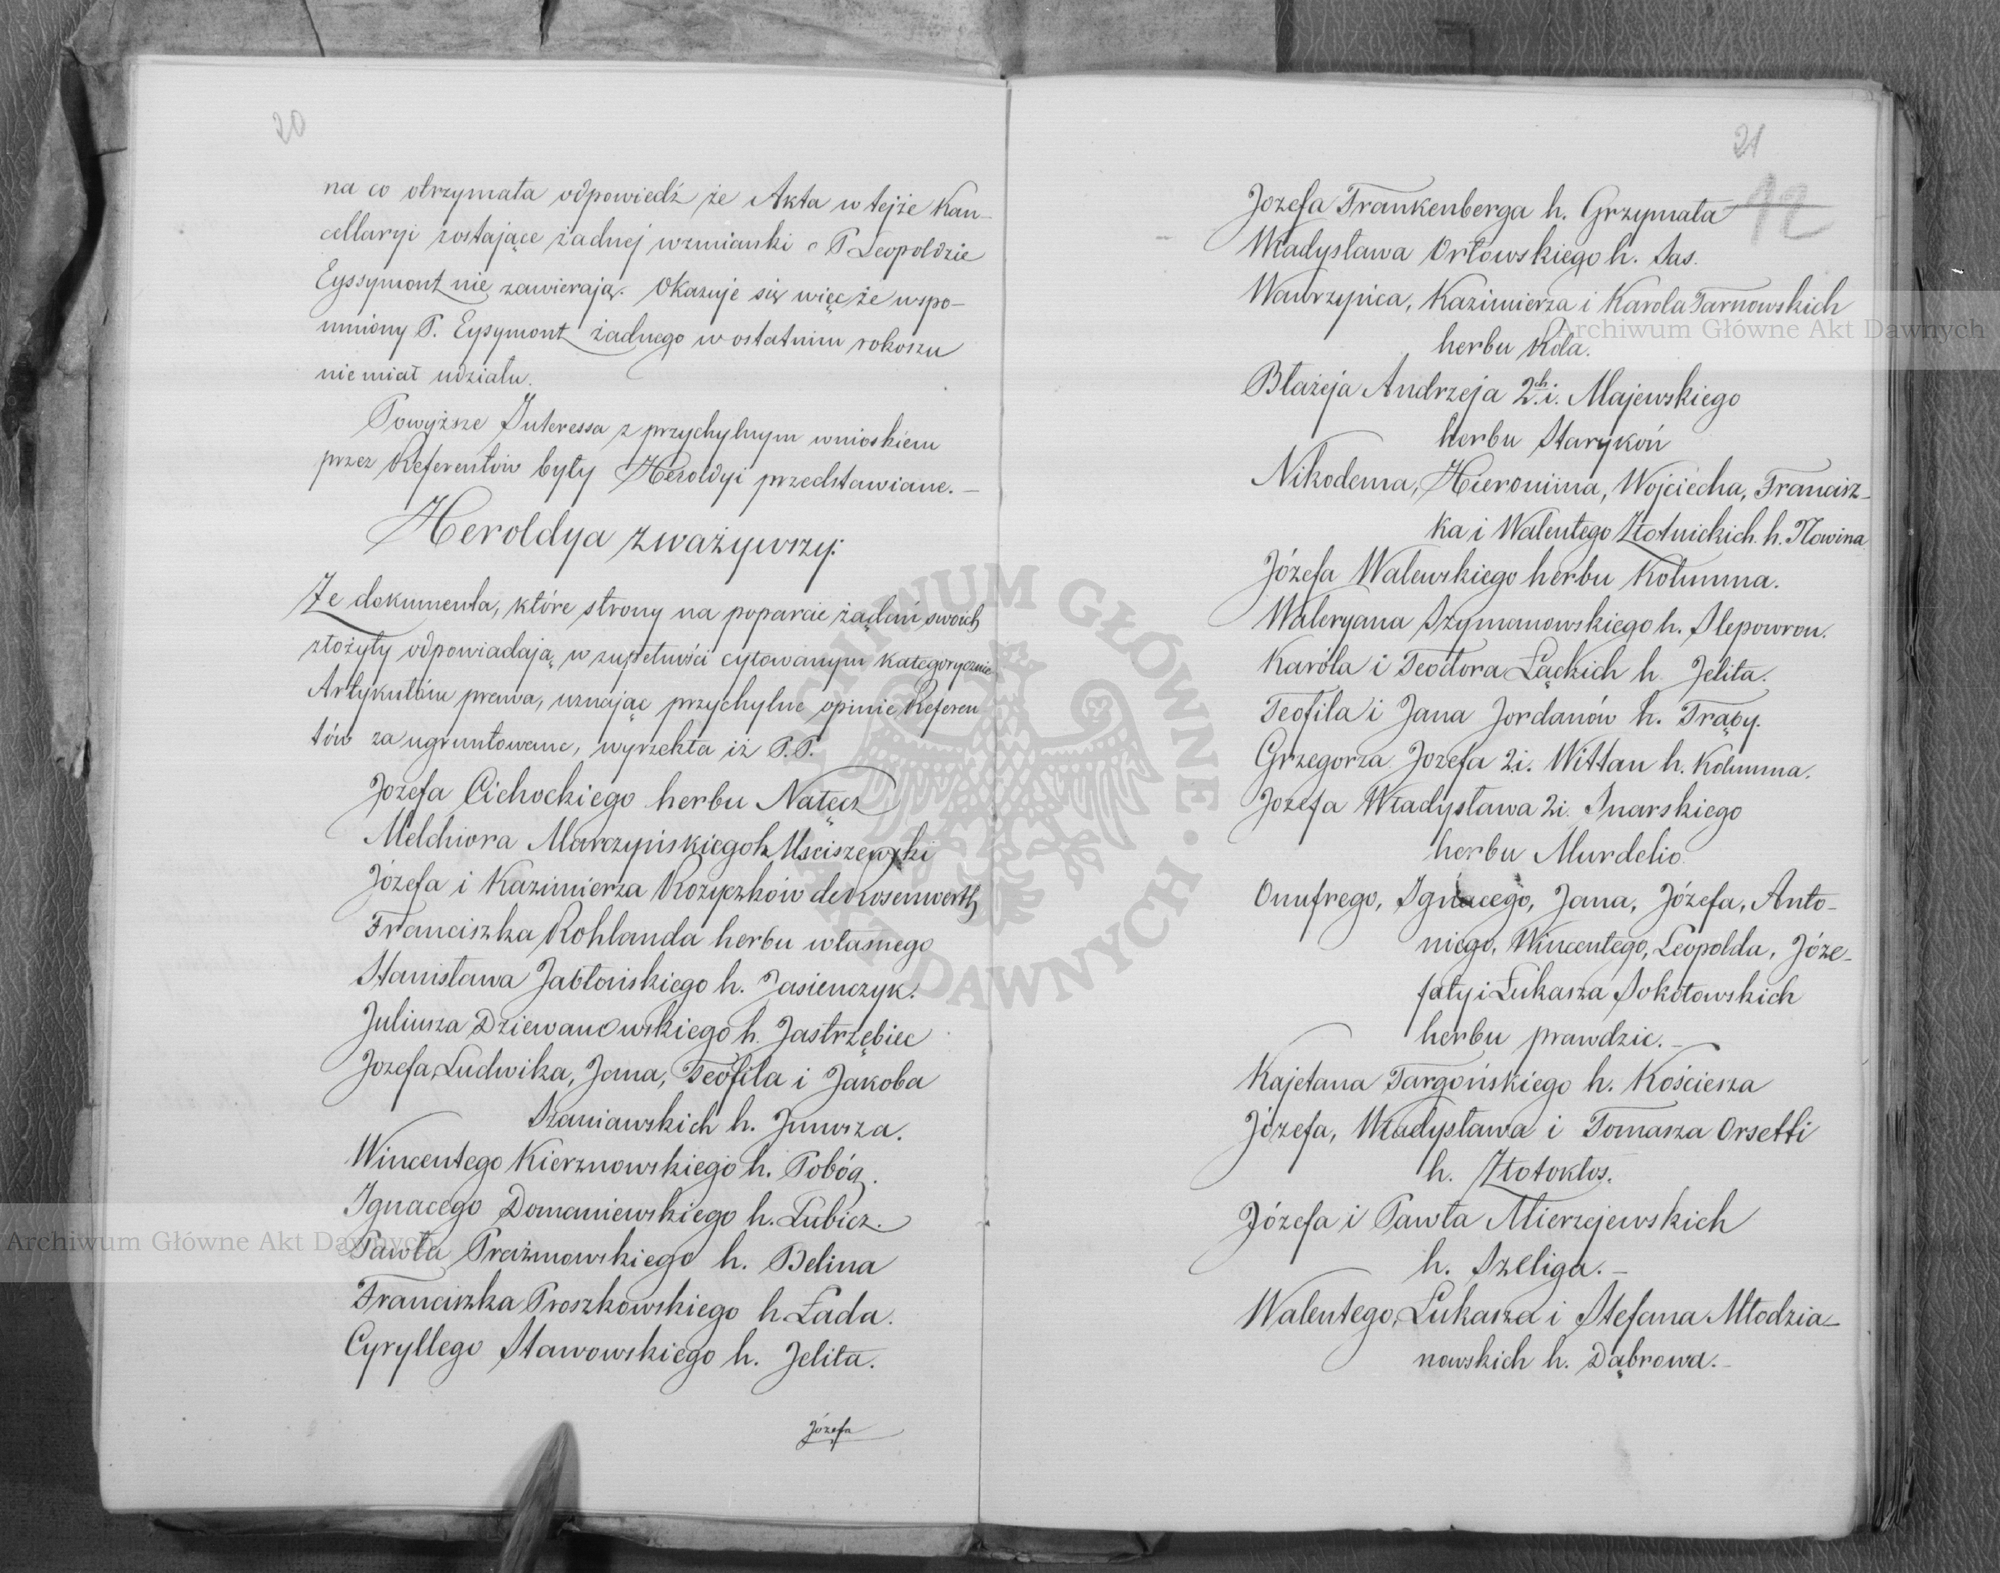 20
na co otrzymała odpowiedź że Akta w tejże Kan-
cellaryi zostające żadnej wzmianki o P. Leopoldzie
Eyssymont nie zawierają. Okazuje się więc że wspo-
mniony P. Eysymont żadnego w ostatnim rokoszu
nie miał udziału.
Powyższe Interessa z przychylnym wnioskiem
przez Referentów były Heroldyi przedstawiane. -
Heroldya zważywszy:
Że dokumenta, które strony na poparcie żądań swoich
złożyły odpowiadają w zupełności cytowanym kategorycznie
Artykułom prawa, uznając przychylne opinie Referen
tów za ugruntowane, wyrzekła iż P.P.
Jozefa Cichockiego herbu Nałęcz
Melchiora Marczyńskiego h. Usciszewski
Józefa i Kazimierza Rozyczków de Rosenwerth
Franciszka Rohlanda herbu własnego
Stanisława Jabłońskiego h. Jasieńczyk.
Juliusza Dziewanowskiego h. Jastrzębiec
Jozefa, Ludwika, Jana, Teofila i Jakoba
Szaniawskich h. Junosza.
Wincentego Kierznowskiego h. Pobóg.
Ignacego Domaniewskiego h. Lubicz.
Pawła Prażmowskiego h. Belina
Franciszka Proszkowskiego h. Łada.
Cyryllego Stawowskiego h. Jelita.
Józefa
21
12
Jozefa Frankenberga h. Grzymała
Władysława Orłowskiego h. Sas.
Wawrzyńca, Kazimierza i Karola Tarnowskich
herbu Rola.
Błażeja Andrzeja 2ch i. Majewskiego
herbu Starykoń
Nikodema, Hieronima, Wojciecha, Francisz-
ka i Walentego Złotnickich h. Nowina
Józefa Walewskiego herbu Kolumna.
Waleryana Szymanowskiego h. Slepowron.
Karóla i Teodora Łąckich h. Jelita.
Teofila i Jana Jordanów h. Trąby.
Grzegorza Jozefa 2.i. Wittan h. Kolumna.
Jozefa Władysława 2i. Snarskiego
herbu Murdelio
Onufrego, Ignacego, Jana, Józefa, Anto-
niego, Wincentego, Leopolda, Józe-
faty i Łukasza Sokołowskich
herbu prawdzic. -
Kajetana Targońskiego h. Kościesza
Józefa, Władysława i Tomasza Orsetti
h. Złotokłos.
Józefa i Pawła Mierzejewskich
h. Szeliga. -
Walentego, Łukasza i Stefana Młodzia-
nowskich h. Dąbrowa. -
Archiwum Główne Akt Dawnych
Archiwum Główne Akt Dawnych
ARCHIWUM GŁÓWNE AKT DAWNYCH